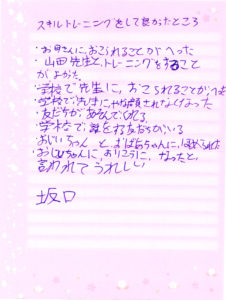 スキルトレーニングをして良かったところ
・お母さんに、おこられることがへった
・山田先生と、トレーニングをすること
がよかった。
・学校で先生に、おこられることがへった
・学校で、先生に
されなくなった
・友だちが、あそんでくれる
・学校で
友だちがいる
おじいちゃんと、おばあちゃんに、ほめられた
・おじいちゃんに、おりこうに、なったと、
言われてうれしい
坂口